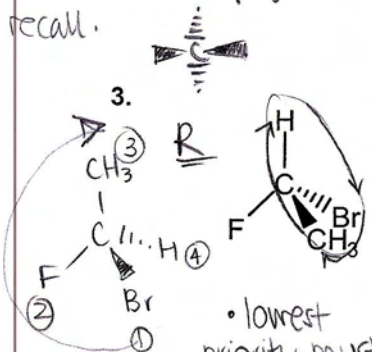 recall.
C
3.
R
CH3 ③
C H ④
F
② Br
①
H
C
F Br
CH3
• lowest